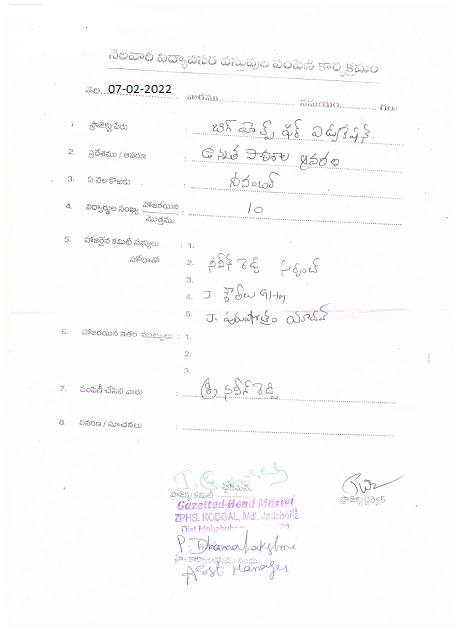 నెలవారి విద్యావసర వస్తువుల పంపిణీ కార్యక్రమం
తేది... 07-02-2022 వారము.................... సమయం........... గం॥
1. ప్రాజెక్టు పేరు : బిగ్ హెల్ప్ ఫర్ ఎడ్యుకేషన్.
2. ప్రదేశము / ఆవరణ : ఉన్నత పాఠశాల ఆవరణ
3. ఏ నెల కొఱకు : నవంబర్
4. విద్యార్థుల సంఖ్య హాజరయిన / మొత్తము : 10
5. హాజరైన కమిటీ సభ్యులు : 1.
హోదాతో 2. నవీన్ రెడ్డి సర్పంచ్
3.
4. J.
5. J. పురుషోత్తం యాదవ్
6. హాజరయిన ఇతర ముఖ్యులు : 1.
2.
3.
7. పంపిణీ చేసిన వారు : శ్రీ నవీన్ రెడ్డి
8. వివరణ / సూచనలు :
ప్రాజెక్టు కమిటీ ఛైర్మన్. ప్రాజెక్టు డైరెక్టర్
Gazetted Head Master
ZPHS. KODGAL, Mdl. Jadcherla
Dist Mahabubn
P. Dhanalakshmi
Asst Manager